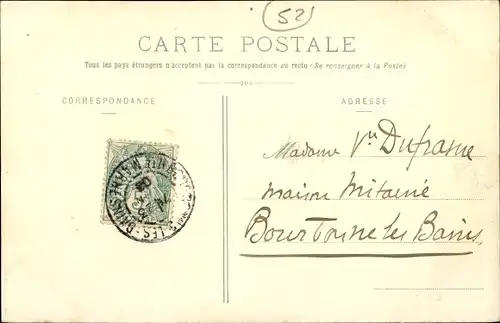 (52)
CARTE POSTALE
Tous les pays étrangers n'acceptent pas la correspondance au recto (Se renseigner à la Poste)
CORRESPONDANCE
ADRESSE
Madame Vve Dufrasne
maison Mitaine
Bourbonne les Bains
LES-BAINS HTE MARNE